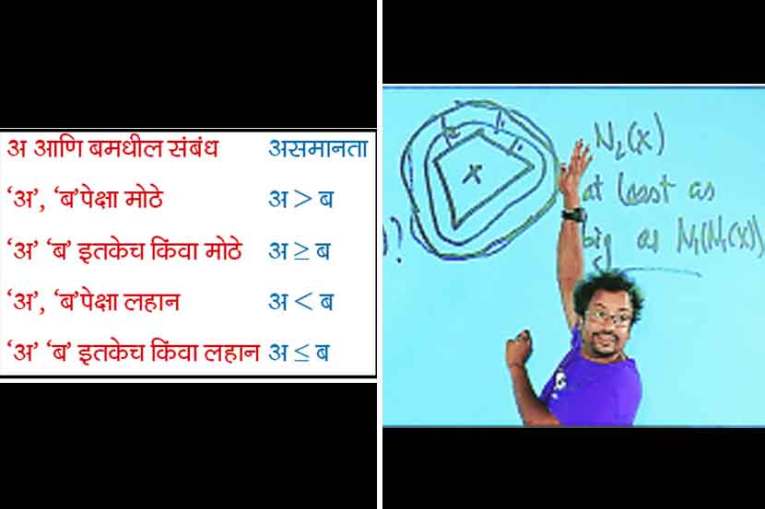 अ आणि बमधील संबंध असमानता
‘अ’, ‘ब’पेक्षा मोठे अ > ब
‘अ’ ‘ब’ इतकेच किंवा मोठे अ ≥ ब
‘अ’, ‘ब’पेक्षा लहान अ < ब
‘अ’ ‘ब’ इतकेच किंवा लहान अ ≤ ब
x
N₂(x)
at least as
big as N₁(N₁(x))
)?